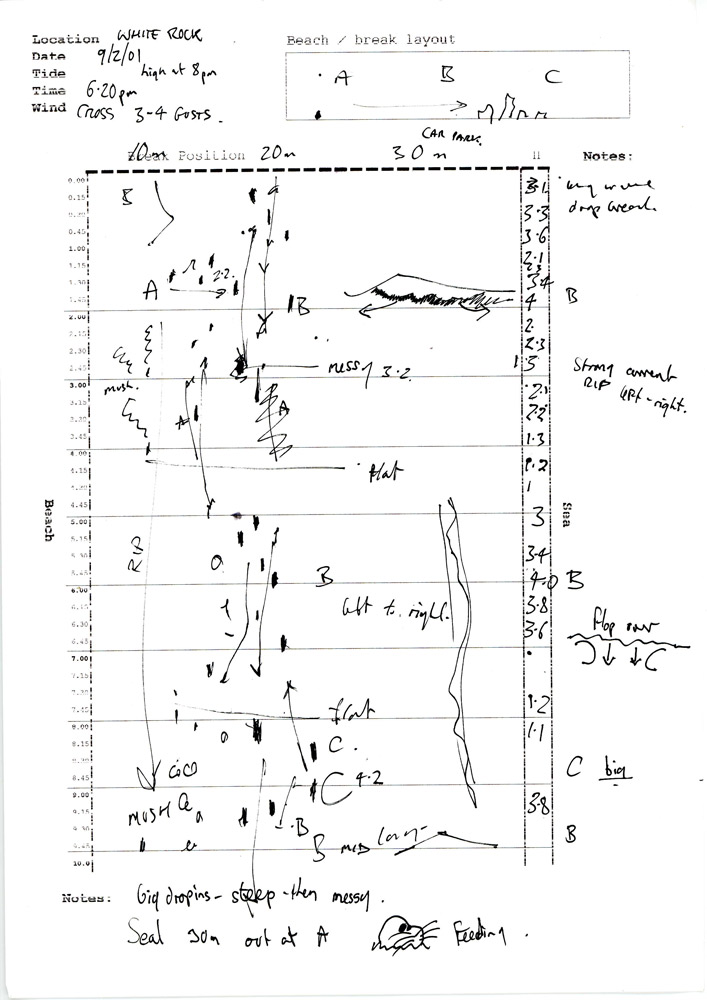 Location WHITE ROCK
Beach / break layout
Date 9/2/01
Tide high at 8pm
Time 6.20pm
Wind CROSS 3-4 GUSTS.
A B C
CAR PARK.
Break Position 10m 20m 30m H Notes:
0.00 B 3.1
0.15 drop
0.30 3.3
0.45 3.6
1.00 2.1
1.15 2.2
1.30 A 3.4
1.45 B 4 B
2.00 2
2.15 2.3
2.30 messy 3.2 3 Strong current
2.45 RIP left-right.
3.00 mush. 2.1
3.15 A A 2.2
3.30 1.3
3.45
4.00 1.2
4.15 flat
4.30 1
4.45
5.00 3
Beach Sea
5.15
5.30 3.4
5.45 B 4.0 B
6.00 left to right. 3.8
6.15 3.6
6.30 flop over
6.45
7.00
7.15
7.30 1.2
7.45 flat
8.00 1.1
8.15 C.
8.30 C big
8.45 C 4.2
9.00 MUSH 3.8
9.15 B B
9.30 B MID long
9.45
10.0
Notes: Big dropins - steep - then messy.
Seal 30m out at A Feeding.